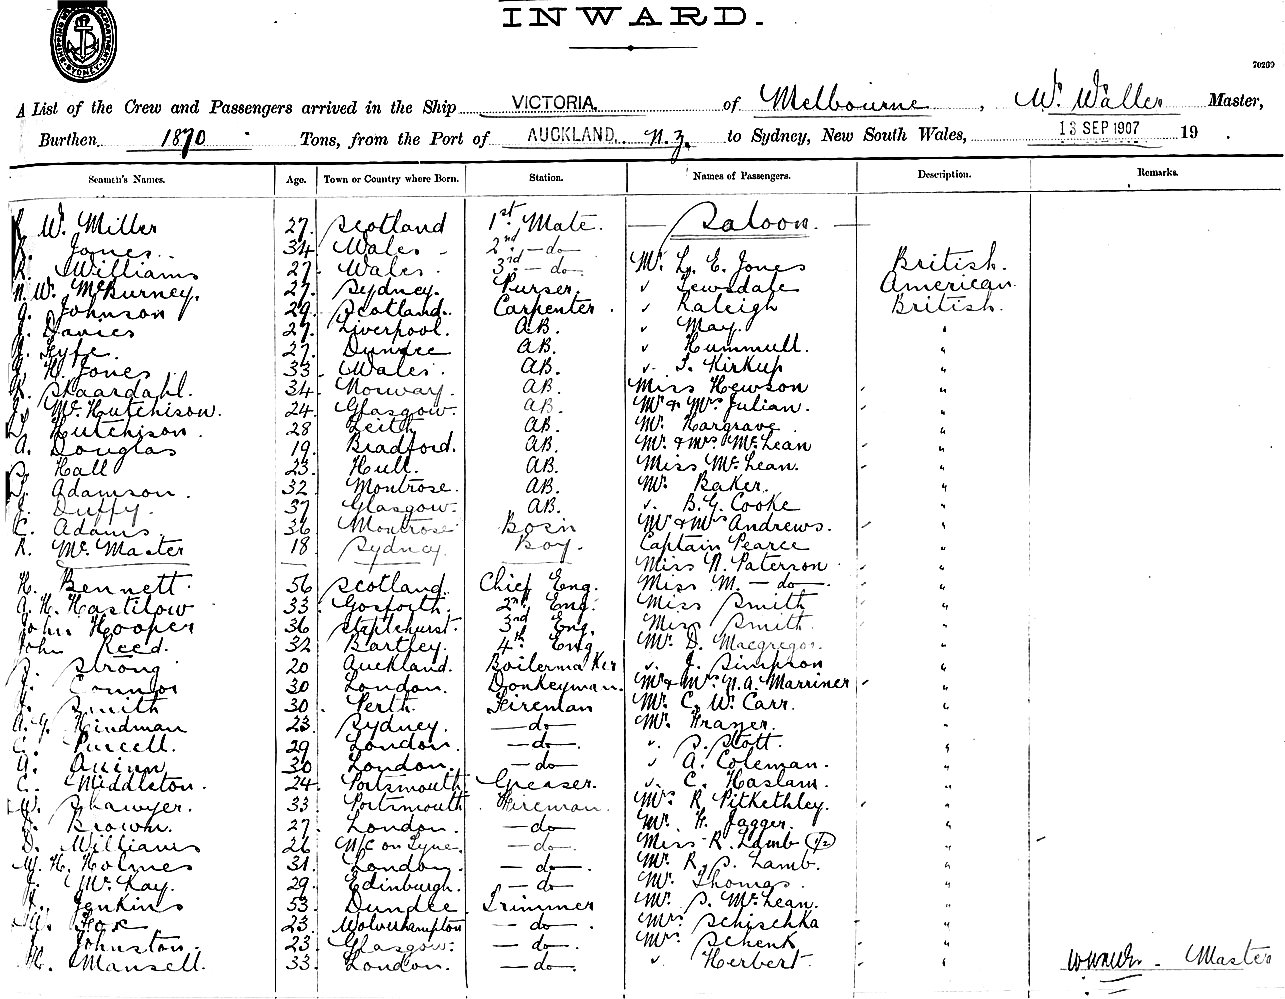 INWARD.
SHIPPING MASTER'S DEPARTMENT SYDNEY
70209
A List of the Crew and Passengers arrived in the Ship VICTORIA of Melbourne, W. Waller Master,
Burthen 1870 Tons, from the Port of AUCKLAND. N.Z. to Sydney, New South Wales, 13 SEP 1907 19 .
Seamen's Names. Age. Town or Country where Born. Station. Names of Passengers. Description. Remarks.
W. Miller 27 Scotland 1st Mate. Saloon.
Jones 34 Wales 2nd -do- Mr. L. E. Jones British.
R. Williams 27 Wales. 3rd -do- " Lewsdale American
W. McBurney. 27 Sydney. Purser. " Raleigh British.
Johnson 29 Scotland. Carpenter. " May. "
J. Davies 27 Liverpool. AB. " Hummull. "
Fyfe. 27 Dundee AB. " T. Kirkup "
H. Jones 33 Wales. AB. Miss Hewson "
Skaardahl. 34 Norway. AB. Mr & Mrs Julian. "
McHutchison. 24 Glasgow. AB. Mr. Hargrave "
Hutchison. 28 Leith AB. Mr. & Mrs McLean "
A. Douglas 19 Bradford. AB. Miss McLean. "
Hall 23 Hull. AB. Mr. Baker. "
Adamson. 32 Montrose. AB. " B. G. Cooke "
J. Duffy. 37 Glasgow. AB. Mr & Mrs Andrews. "
C. Adams. 36 Montrose Bosn Captain Pearce "
R. McMaster 18 Sydney. Boy. Miss N. Paterson "
H. Bennett. 56 Scotland. Chief Eng. Miss M. -do- "
A. H. Hastilow 33 Gosforth. 2nd Eng. Miss Smith "
John Hooper 36 Staplehurst. 3rd Eng. Miss Smith. "
John Reed. 32 Bartley. 4th Eng. Mr. D. Macgregor. "
Strong 20 Auckland. Boilermaker " J. Simpson "
J. Connor 30 London. Donkeyman. Mr & Mrs N. A. Marriner "
J. Smith 30 Perth. Fireman Mr. C. W. Carr. "
A. G. Hindman 23 Sydney. -do- Mr. Frazer. "
C. Purcell. 29 London. -do- " S. Stott. "
Quinn 30 London. -do- " A. Coleman. "
C. Middleton. 24 Portsmouth Greaser. " C. Haslam. "
W. Shawyer. 33 Portsmouth Fireman. Mrs R. Pitkethley. "
Brown. 27 London. -do- Mr. H. Jagger. "
D. Williams 26 N/C on Tyne. -do- Miss R. Lamb (½) "
H. Holmes 31 London -do- Mr. R. S. Lamb. "
J. McKay. 29 Edinburgh. -do- Mr. Thomas. "
Jenkins 53 Dundee Trimmer Mr. S. McLean. "
Fox 23 Wolverhampton -do- Mrs Schischka "
Johnston. 23 Glasgow. -do- Mrs Schenk "
Mansell. 33 London. -do- " Herbert. " W Waller. Master